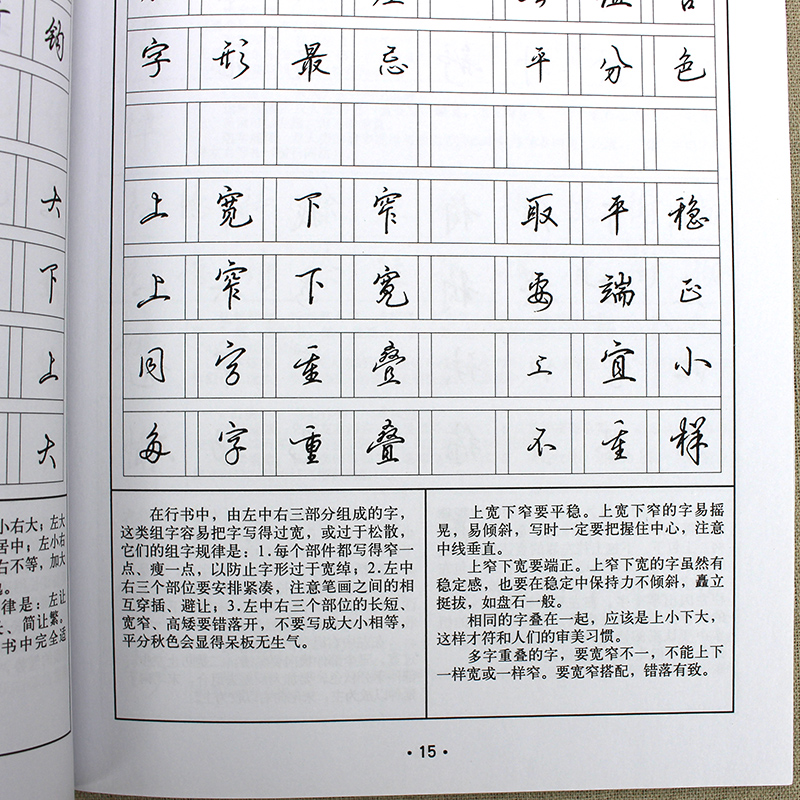 钩
大
下
上
大
小右大；左大
居中；左小右
右不等，加大
律是：左让
、简让繁。
书中完全适
字形最忌 平分秋色
上宽下窄 取平稳
上窄下宽 要端正
同字重叠 上宜小
多字重叠 不重样
在行书中，由左中右三部分组成的字，
这类组字容易把字写得过宽，或过于松散，
它们的组字规律是：1.每个部件都写得窄一
点、瘦一点，以防止字形过于宽绰；2.左中
右三个部位要安排紧凑，注意笔画之间的相
互穿插、避让；3.左中右三个部位的长短、
宽窄、高矮要错落开，不要写成大小相等，
平分秋色会显得呆板无生气。
上宽下窄要平稳。上宽下窄的字易摇
晃，易倾斜，写时一定要把握住中心，注意
中线垂直。
上窄下宽要端正。上窄下宽的字虽然有
稳定感，也要在稳定中保持力不倾斜，矗立
挺拔，如盘石一般。
相同的字叠在一起，应该是上小下大，
这样才符和人们的审美习惯。
多字重叠的字，要宽窄不一，不能上下
一样宽或一样窄。要宽窄搭配，错落有致。
·15·